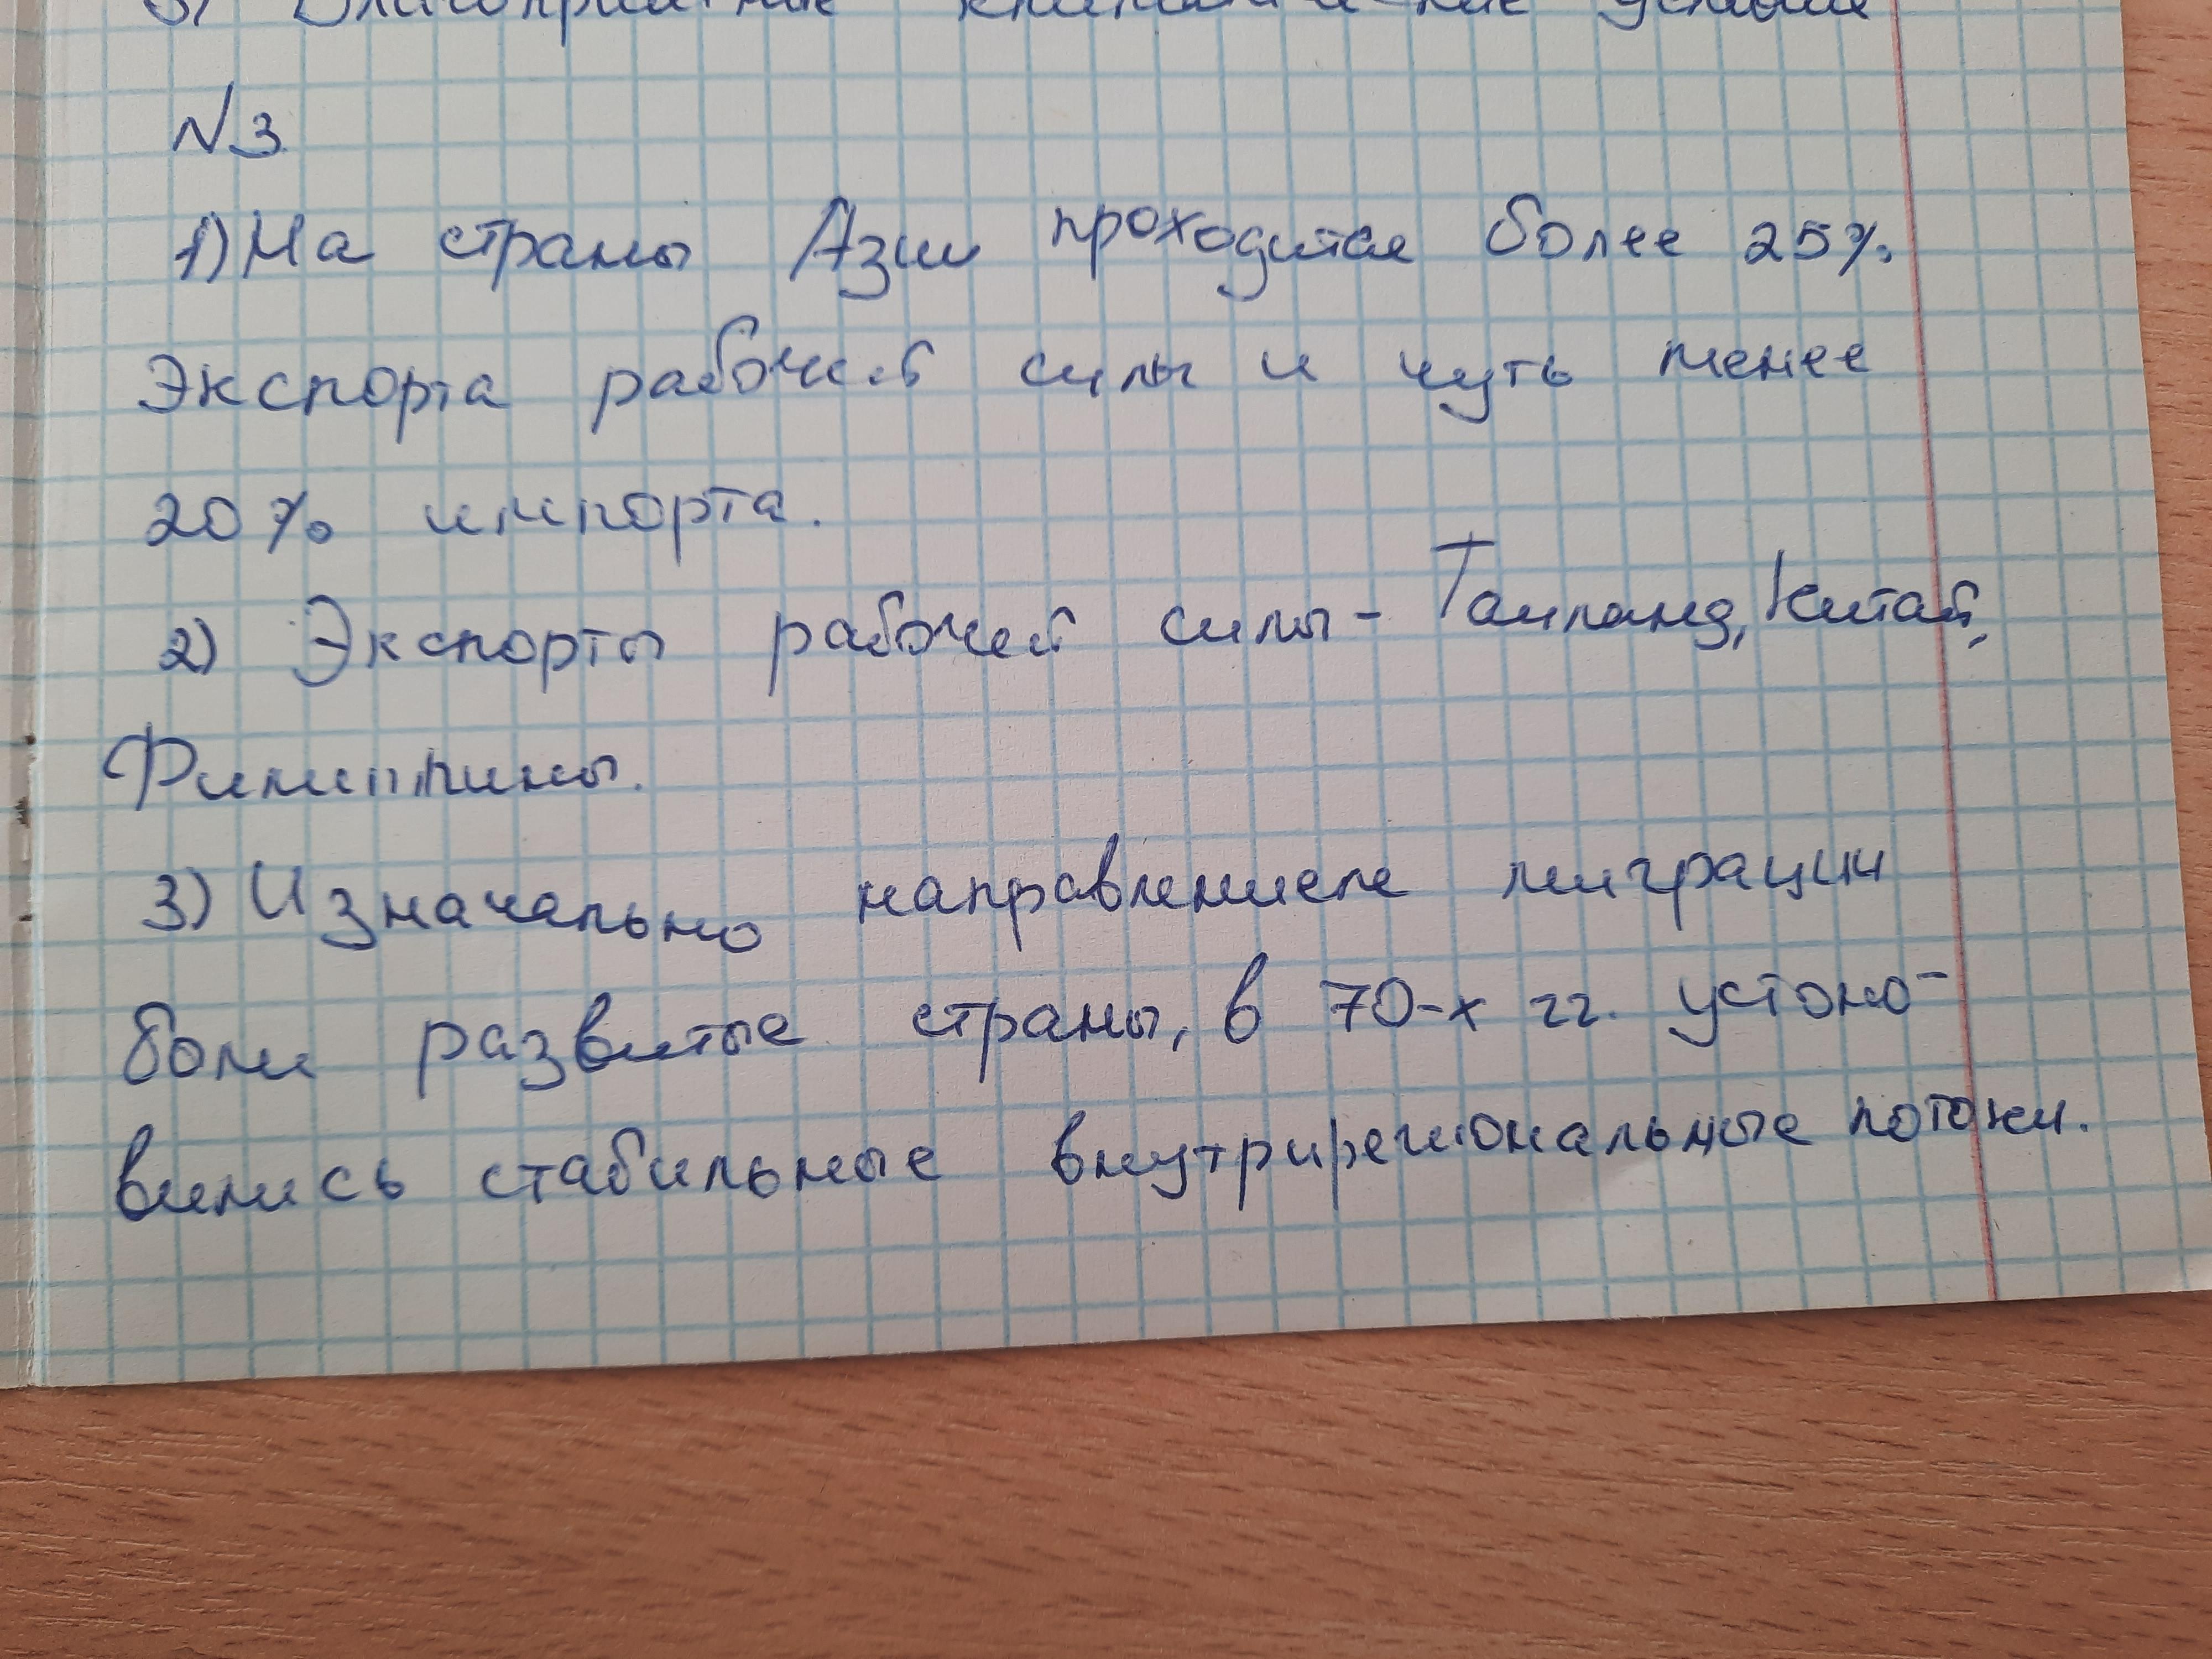 3) Благоприятные климатические условия
N3
1) На страны Азии проходится более 25%
Экспорта рабочей силы и чуть менее
20% импорта.
2) Экспорты рабочей силы - Таиланд, Китай,
Филиппины.
3) Изначально направлением миграции
были развитые страны, в 70-х гг. устоно-
вились стабильные внутрирегиональные потоки.